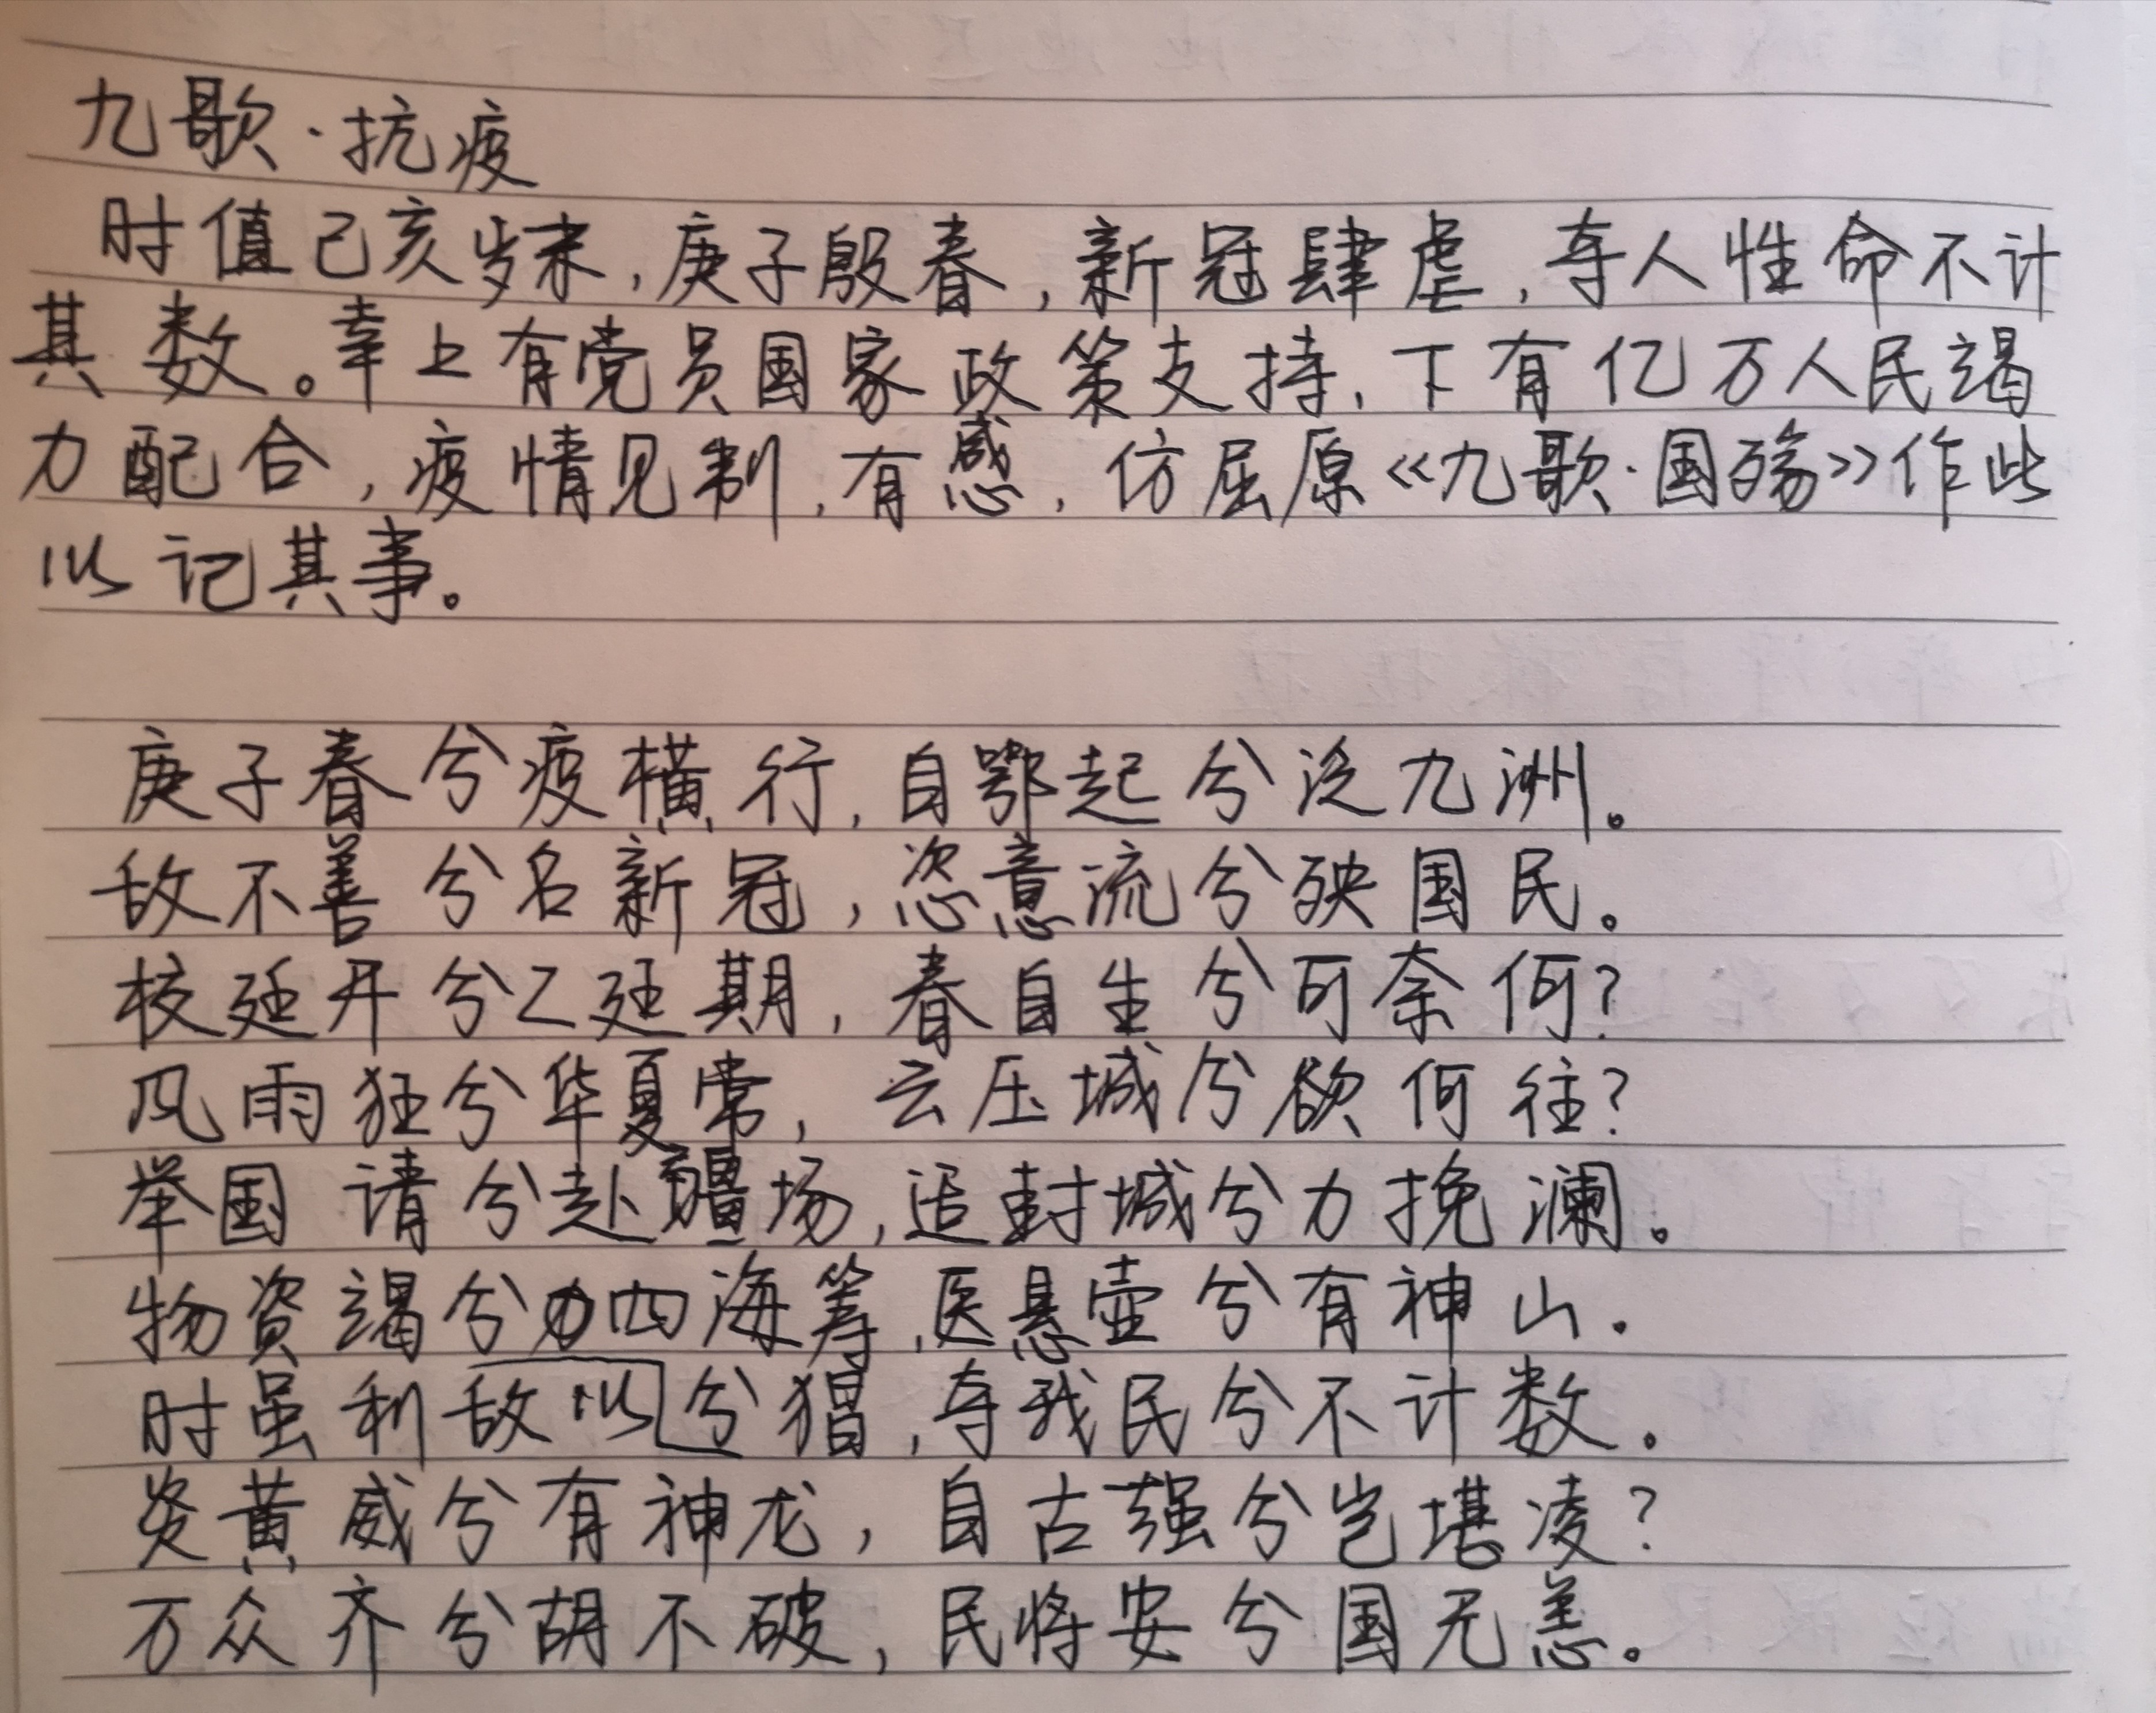 九歌·抗疫
时值己亥岁末,庚子殷春,新冠肆虐,夺人性命不计
其数。幸上有党员国家政策支持,下有亿万人民竭
力配合,疫情见制,有感,仿屈原《九歌·国殇》作此
以记其事。
庚子春兮疫横行,自鄂起兮泛九洲。
敌不善兮名新冠,恣意流兮殃国民。
校延开兮工延期,春自生兮可奈何?
风雨狂兮华夏常,云压城兮欲何往?
举国请兮赴疆场,追封城兮力挽澜。
物资竭兮四海筹,医悬壶兮有神山.
时虽利敌以兮猖,夺我民兮不计数.
炎黄威兮有神龙,自古强兮岂堪凌?
万众齐兮胡不破,民将安兮国无恙。